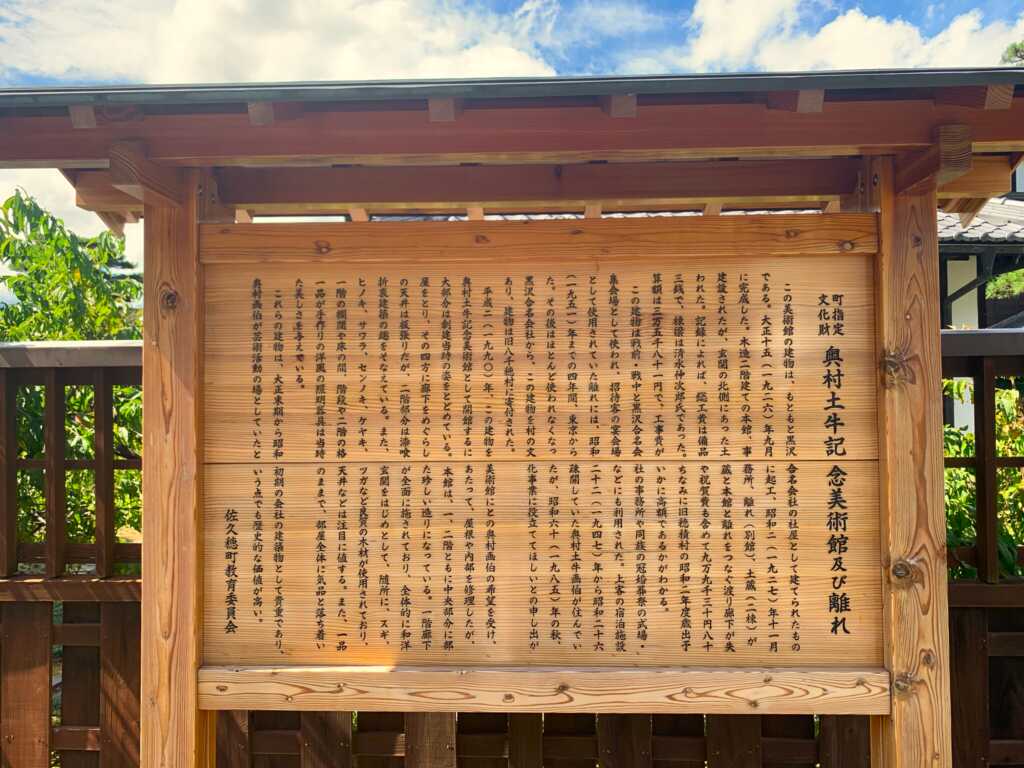 町指定
文化財
奥村土牛記念美術館及び離れ
この美術館の建物は、もともと黒沢合名会社の社屋として建てられたもの
である。大正十五（一九二六）年九月に起工、昭和二（一九二七）年十一月
に完成した。木造二階建ての本館、事務所、離れ（別館）、土蔵（二棟）が
建設されたが、玄関の北側にあった土蔵と本館と離れをつなぐ渡り廊下が失
われた。記録によれば、総工費は備品や祝賀費も含めて九万九千二十円八十
三銭で、棟梁は清水仲次郎氏であった。ちなみに旧穂積村の昭和二年度歳出予
算額は三万五千八十一円で、工事費がいかに高額であるかがわかる。
この建物は戦前、戦中と黒沢合名会社の事務所や同族の冠婚葬祭の式場・
集会場として使われ、招待客の宴会場などにも利用された。上客の宿泊施設
として使用されていた離れには、昭和二十二（一九四七）年から昭和二十六
（一九五一）年までの四年間、東京から疎開していた奥村土牛画伯が住んでい
た。その後はほとんど使われなくなったが、昭和六十（一九八五）年の秋、
黒沢合名会社から、この建物を村の文化事業に役立ててほしいとの申し出が
あり、建物は旧八千穂村に寄付された。
平成二（一九九〇）年、この建物を美術館にとの奥村画伯の希望を受け、
奥村土牛記念美術館として開館するにあたって、屋根や内部を修理したが、
大部分は創建当時の姿をとどめている。本館は、一、二階ともに中央部分に部
屋をとり、その四方に廊下をめぐらした珍しい造りになっている。一階廊下
の天井は板張りだが、二階部分は漆喰が全面に施されており、全体的に和洋
折衷建築の趣をそなえている。また、玄関をはじめとして、随所に、スギ、
ヒノキ、サワラ、センノキ、ケヤキ、ツガなど良質の木材が使用されており、
一階の欄間や床の間、階段や二階の格天井などは注目に値する。また、一品
一品が手作りの洋風の照明器具は当時のままで、部屋全体に気品と落ち着い
た美しさを与えている。
これらの建物は、大正末期から昭和初期の会社の建築物として貴重であり、
奥村画伯が芸術活動の場としていたという点でも歴史的な価値が高い。
佐久穂町教育委員会